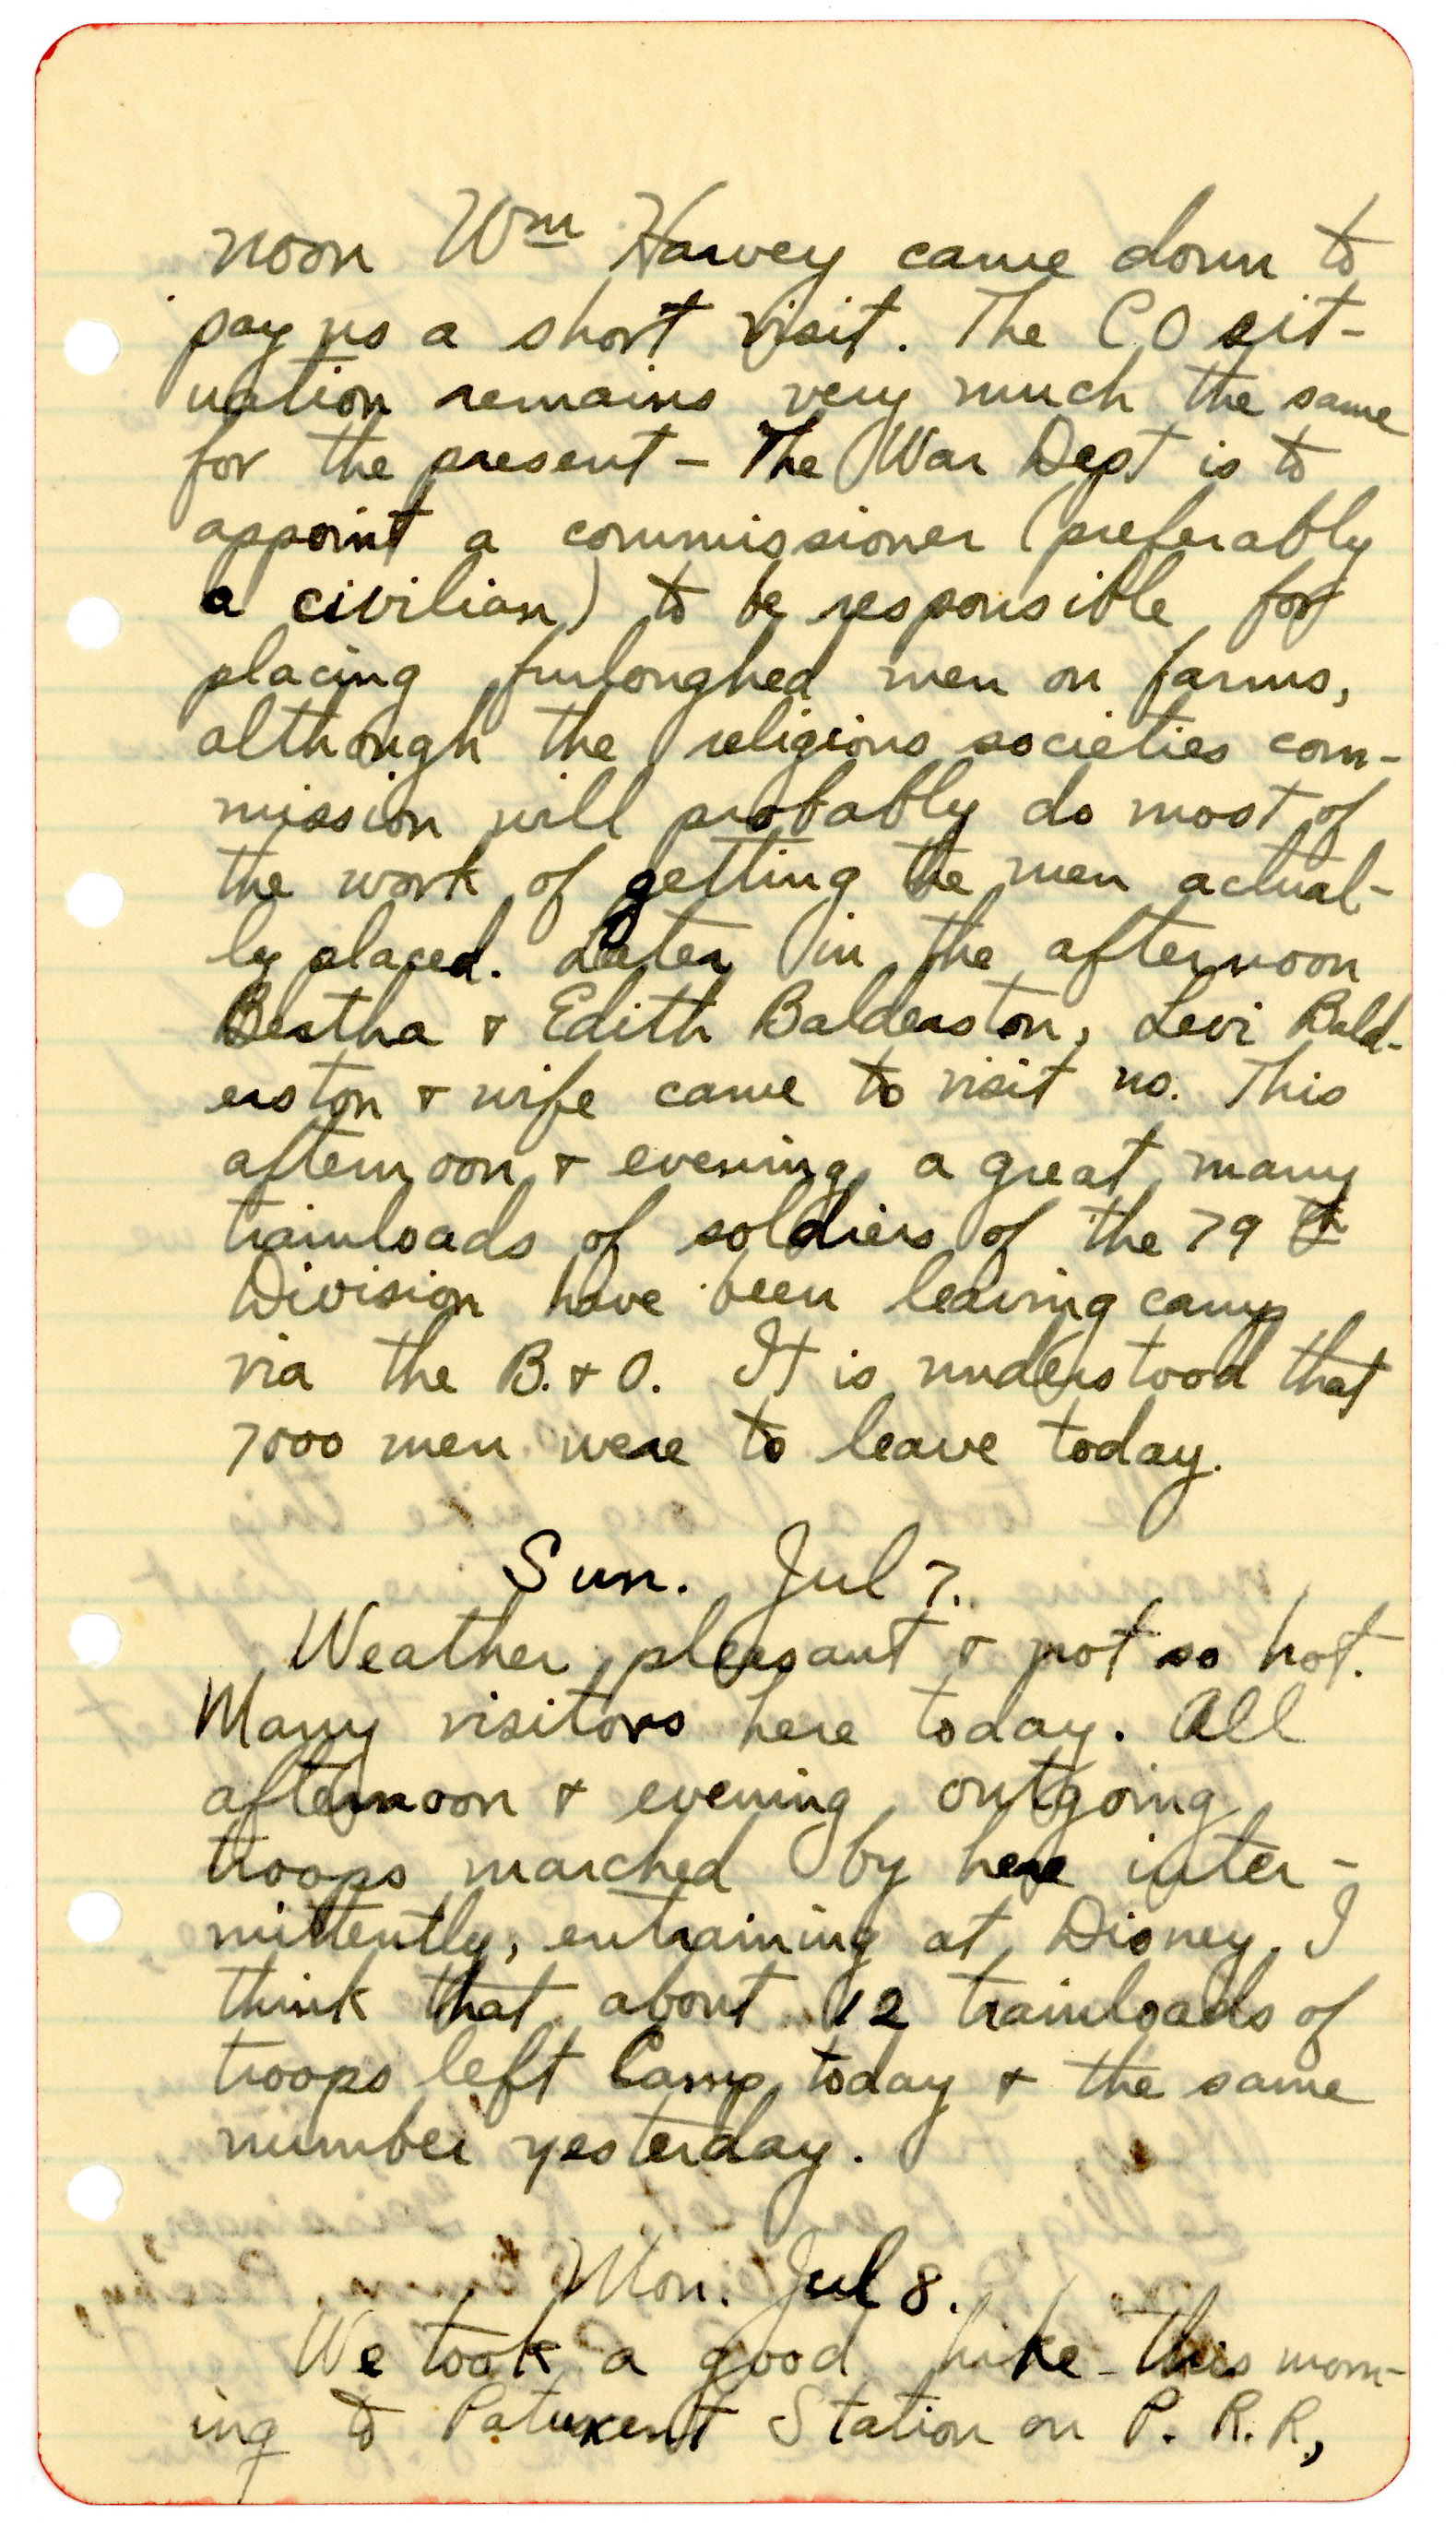 noon Wm Harvey came down to
pay us a short visit. The C O sit-
uation remains very much the same
for the present - The War Dept is to
appoint a commissioner (preferably
a civilian) to be responsible for
placing furloughed men on farms,
although the religious societies com-
mission will probably do most of
the work of getting the men actual-
ly placed. Later in the afternoon
Bertha & Edith Balderston, Levi Bald-
erston & wife came to visit us. This
afternoon & evening a great many
trainloads of soldiers of the 79th
Division have been leaving camp
via the B. & O. It is understood that
7000 men were to leave today.
Sun. Jul 7.
Weather pleasant & not so hot.
Many visitors here today. All
afternoon & evening outgoing
troops marched by here inter-
mittently, entraining at Disney. I
think that about 12 trainloads of
troops left Camp today & the same
number yesterday.
Mon. Jul 8.
We took a good hike this morn-
ing to Patuxent Station on P. R. R.,